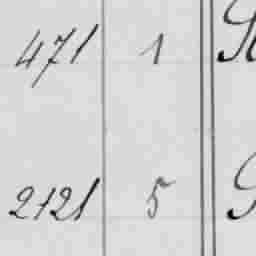 471 1
2121 5